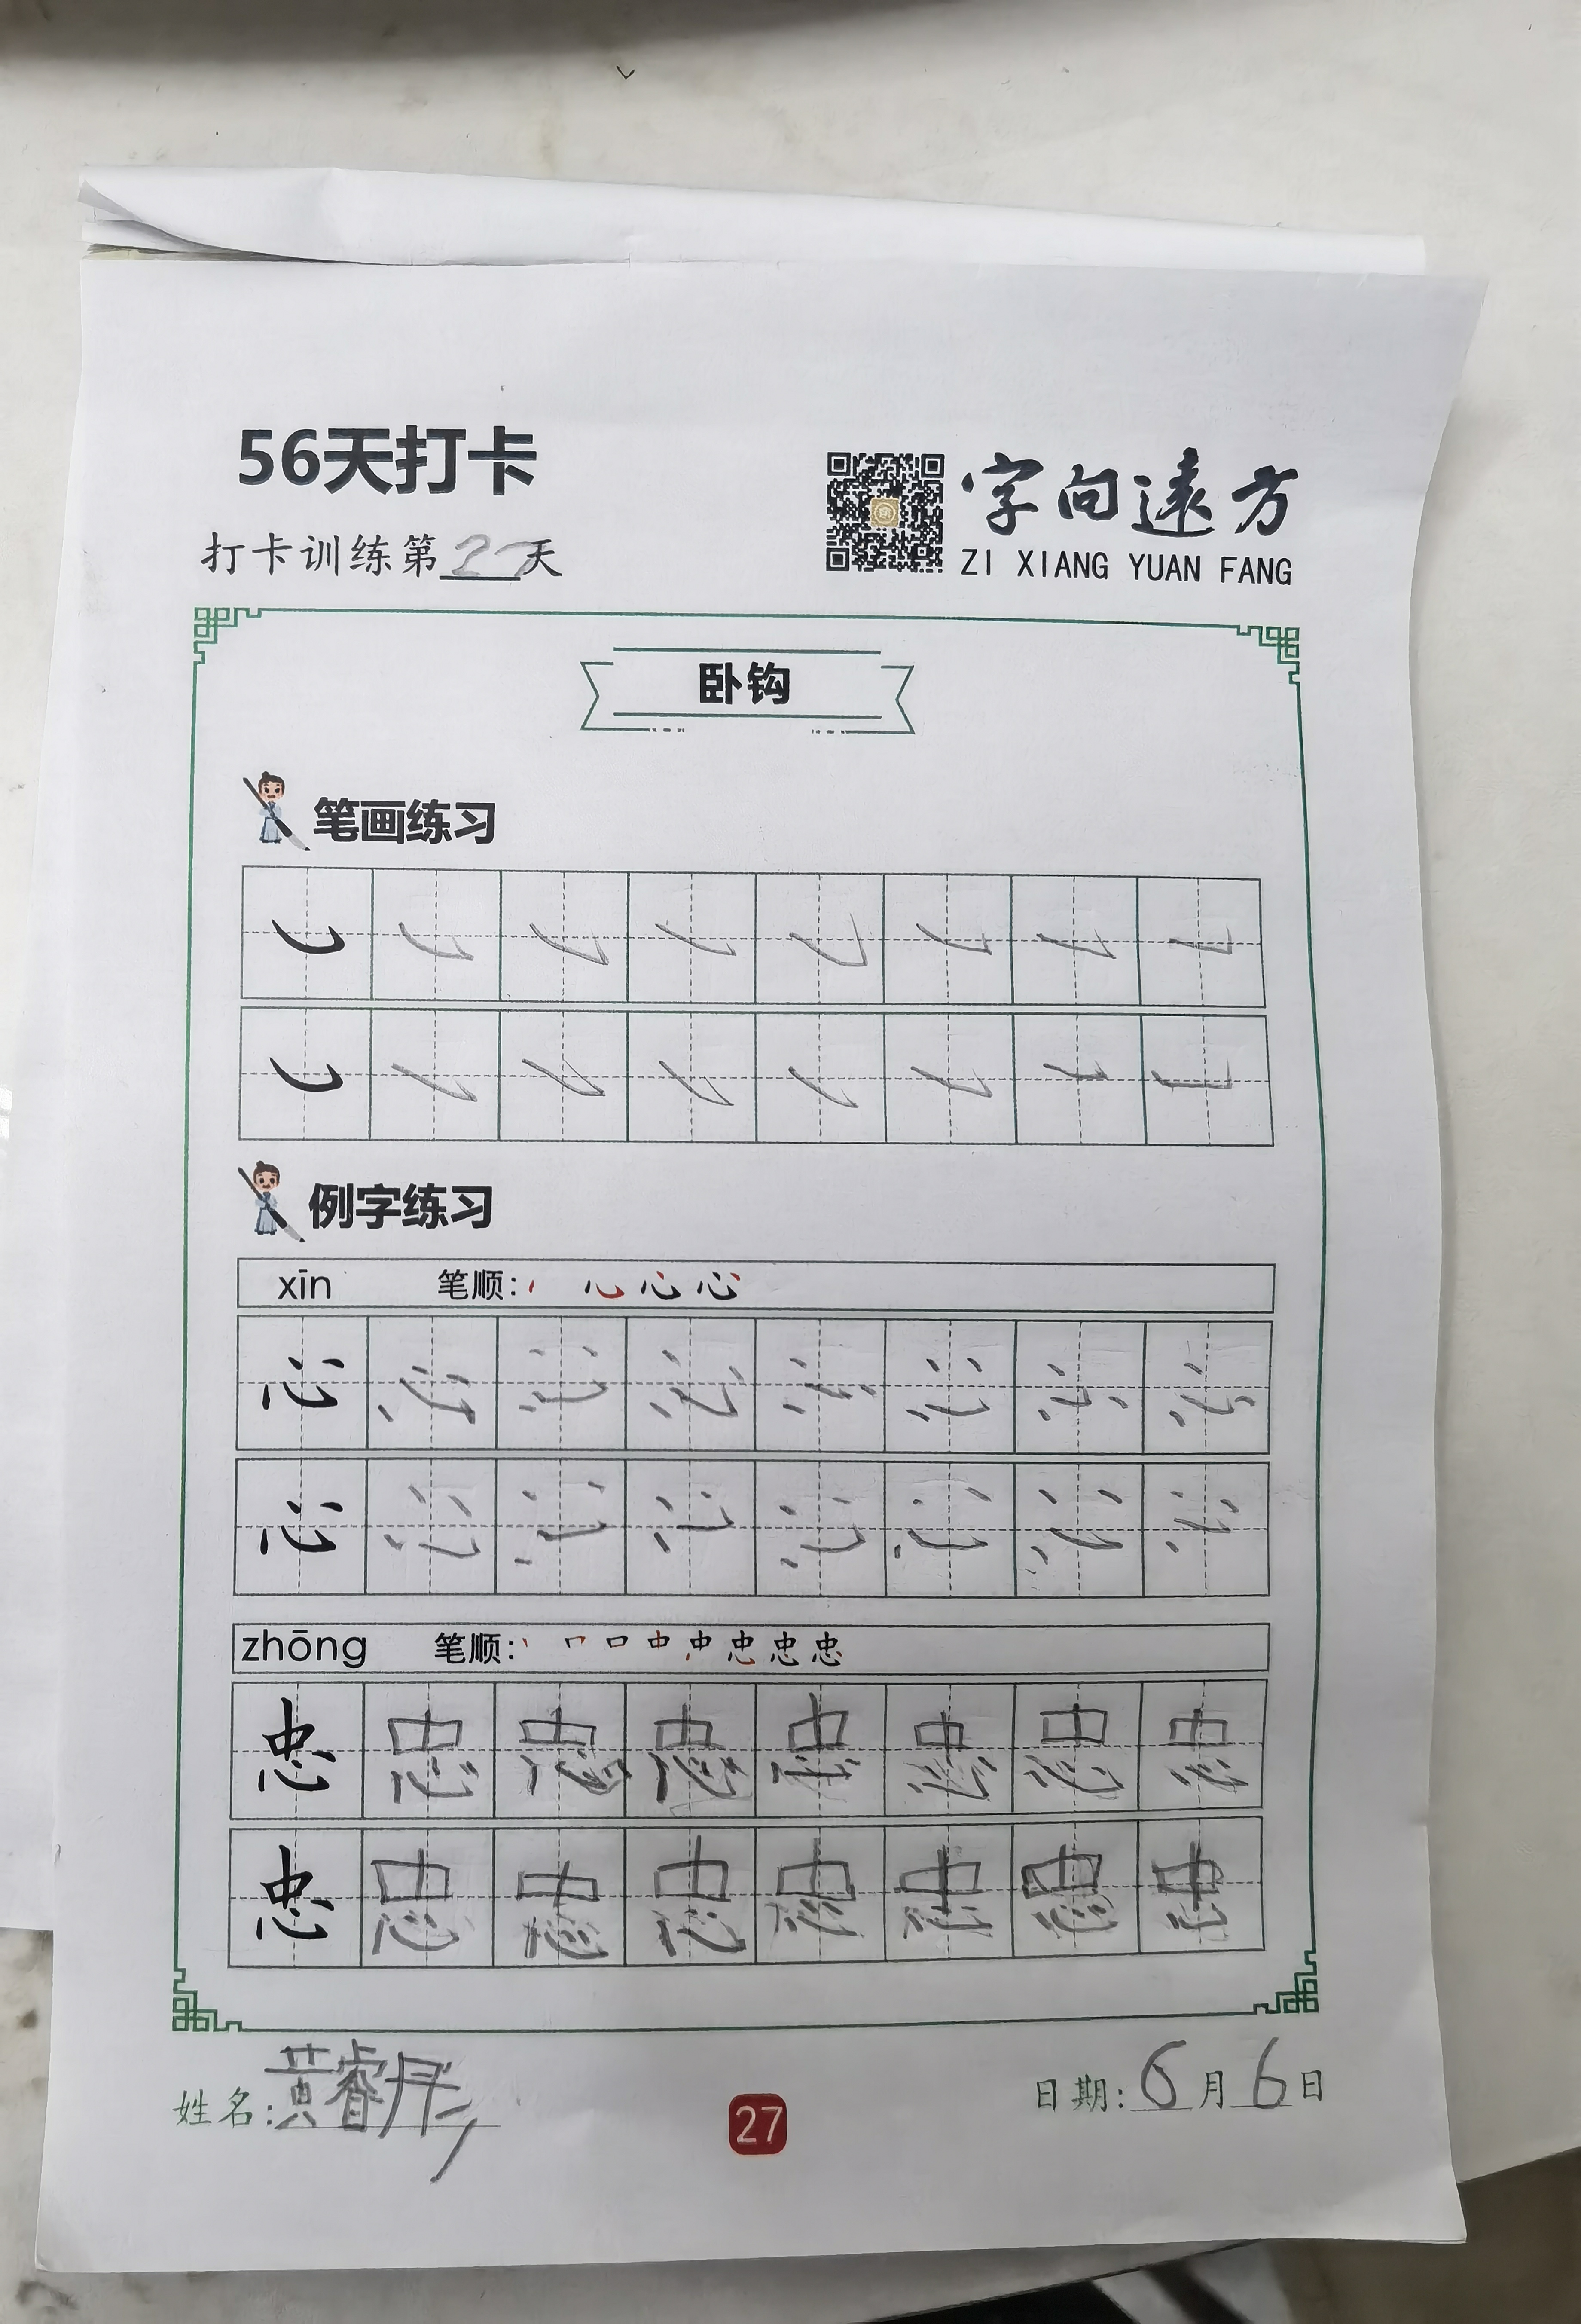 56天打卡
字向遠方
打卡训练第27天
ZI XIANG YUAN FANG
卧钩
笔画练习
例字练习
xīn 笔顺:
心 心 心 心 心 心 心 心
心 心 心 心 心 心 心 心
zhōng 笔顺: 丨 口 口 中 中 忠 忠 忠
忠 忠 忠 忠 忠 忠 忠 忠
忠 忠 忠 忠 忠 忠 忠 忠
姓名:黄睿彤
27
日期:6月6日